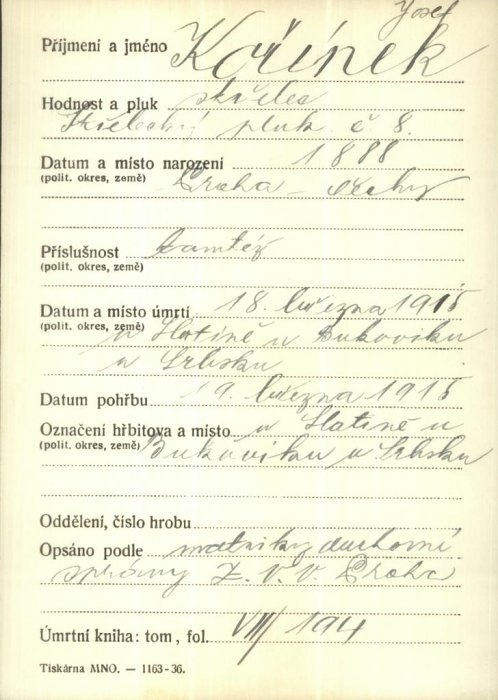 Josef
Příjmení a jméno Kořínek
Hodnost a pluk střelec
Střelecký pluk č 8.
Datum a místo narození 1888
(polit. okres, země) Praha – Čechy
Příslušnost tamtéž
(polit. okres, země)
Datum a místo úmrtí 18. března 1915
(polit. okres, země) v Slatině u Bukoviku
v Srbsku
Datum pohřbu 19. března 1915
Označení hřbitova a místo v Slatině u
(polit. okres, země) Bukoviku v Srbsku
Oddělení, číslo hrobu
Opsáno podle matriky duchovní
správy Z. V. V. Praha
Úmrtní kniha: tom, fol. VIII/194
Tiskárna MNO. — 1163-36.